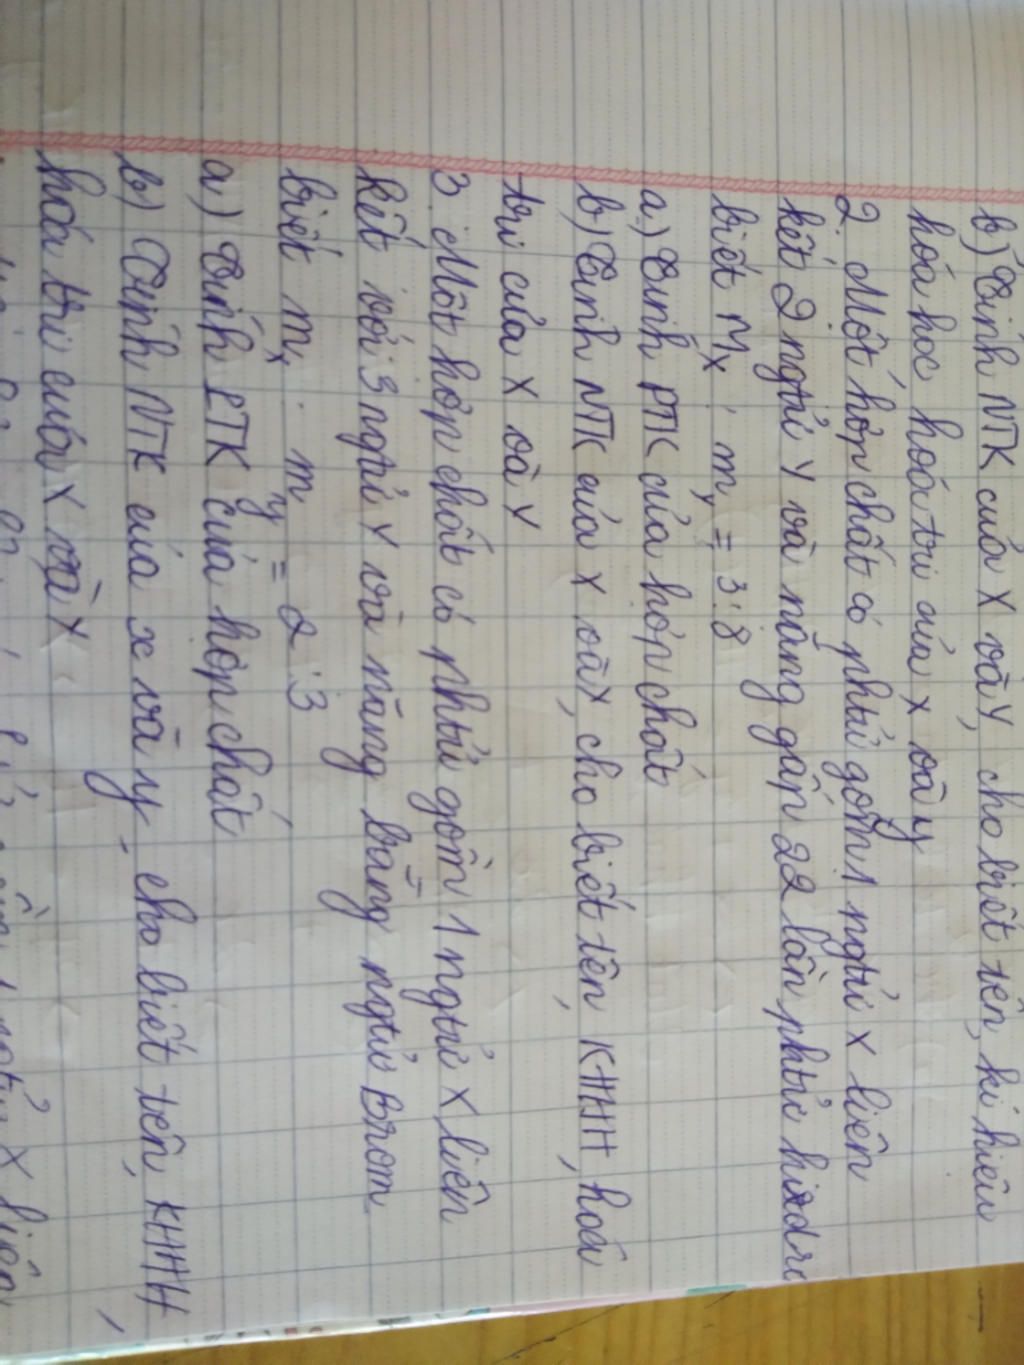 b) Tính NTK của X và Y, cho biết tên, kí hiệu
hoá học hoá trị của X và y
2. Một hợp chất có phtử gồm 1 ngtử X liên
kết 2 ngtử Y và nặng gấp 22 lần phtử hiđrô
biết Mx : my = 3:8
a) Tính PTK của hợp chất
b) Tính NTK của X và Y, cho biết tên, KHHH, hoá
trị của X và Y
3. Một hợp chất có phtử gồm 1 ngtử X liên
kết với 3 ngtử Y và nặng bằng ngtử Brom
biết mx : my = 2:3
a) Tính PTK của hợp chất
b) Tính NTK của x và y, cho biết tên, KHHH,
hoá trị của X và Y